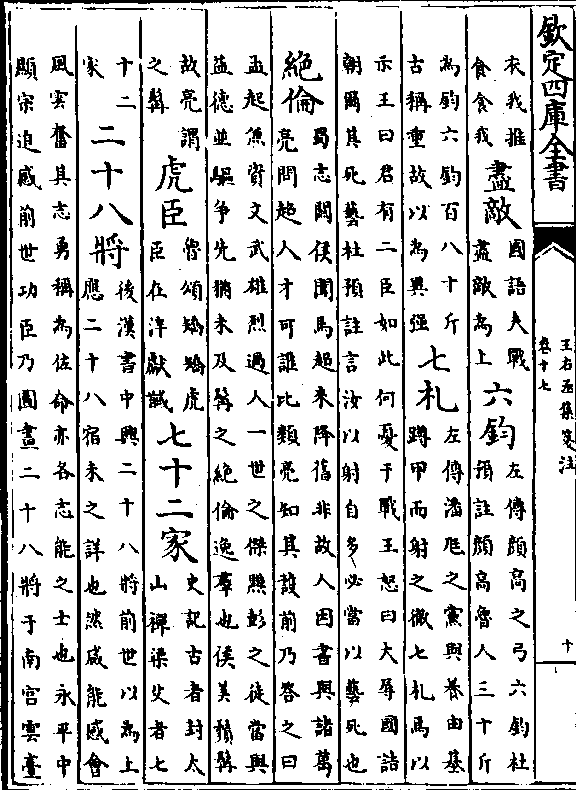 欽定四庫全書
王右丞集箋注
卷十七
十
衣我推
食食我
盡敵
國語夫戰
盡敵為上
六鈞
左傳顔高之弓六鈞杜
預註顔高魯人三十斤
為鈞六鈞百八十斤
古稱重故以為異强
七札
左傳潘尫之黨與養由基
蹲甲而射之徹七札焉以
示王曰君有二臣如此何憂于戰王怒曰大辱國詰
朝爾其死藝杜預註言汝以射自多必當以藝死也
絶倫
蜀志關侯聞馬超來降舊非故人因書與諸葛
亮問超人才可誰比類亮知其護前乃答之曰
孟起兼資文武雄烈過人一世之傑黥彭之徒當與
益德並驅爭先猶未及髯之絶倫逸羣也侯美鬚髯
故亮謂
之髯
虎臣
魯頌矯矯虎
臣在泮獻馘
七十二家
史記古者封太
山禪梁父者七
十二
家
二十八將
後漢書中興二十八將前世以為上
應二十八宿未之詳也然咸能感會
風雲奮其志勇稱為佐命亦各志能之士也永平中
顯宗追感前世功臣乃圖畫二十八將于南宮雲臺